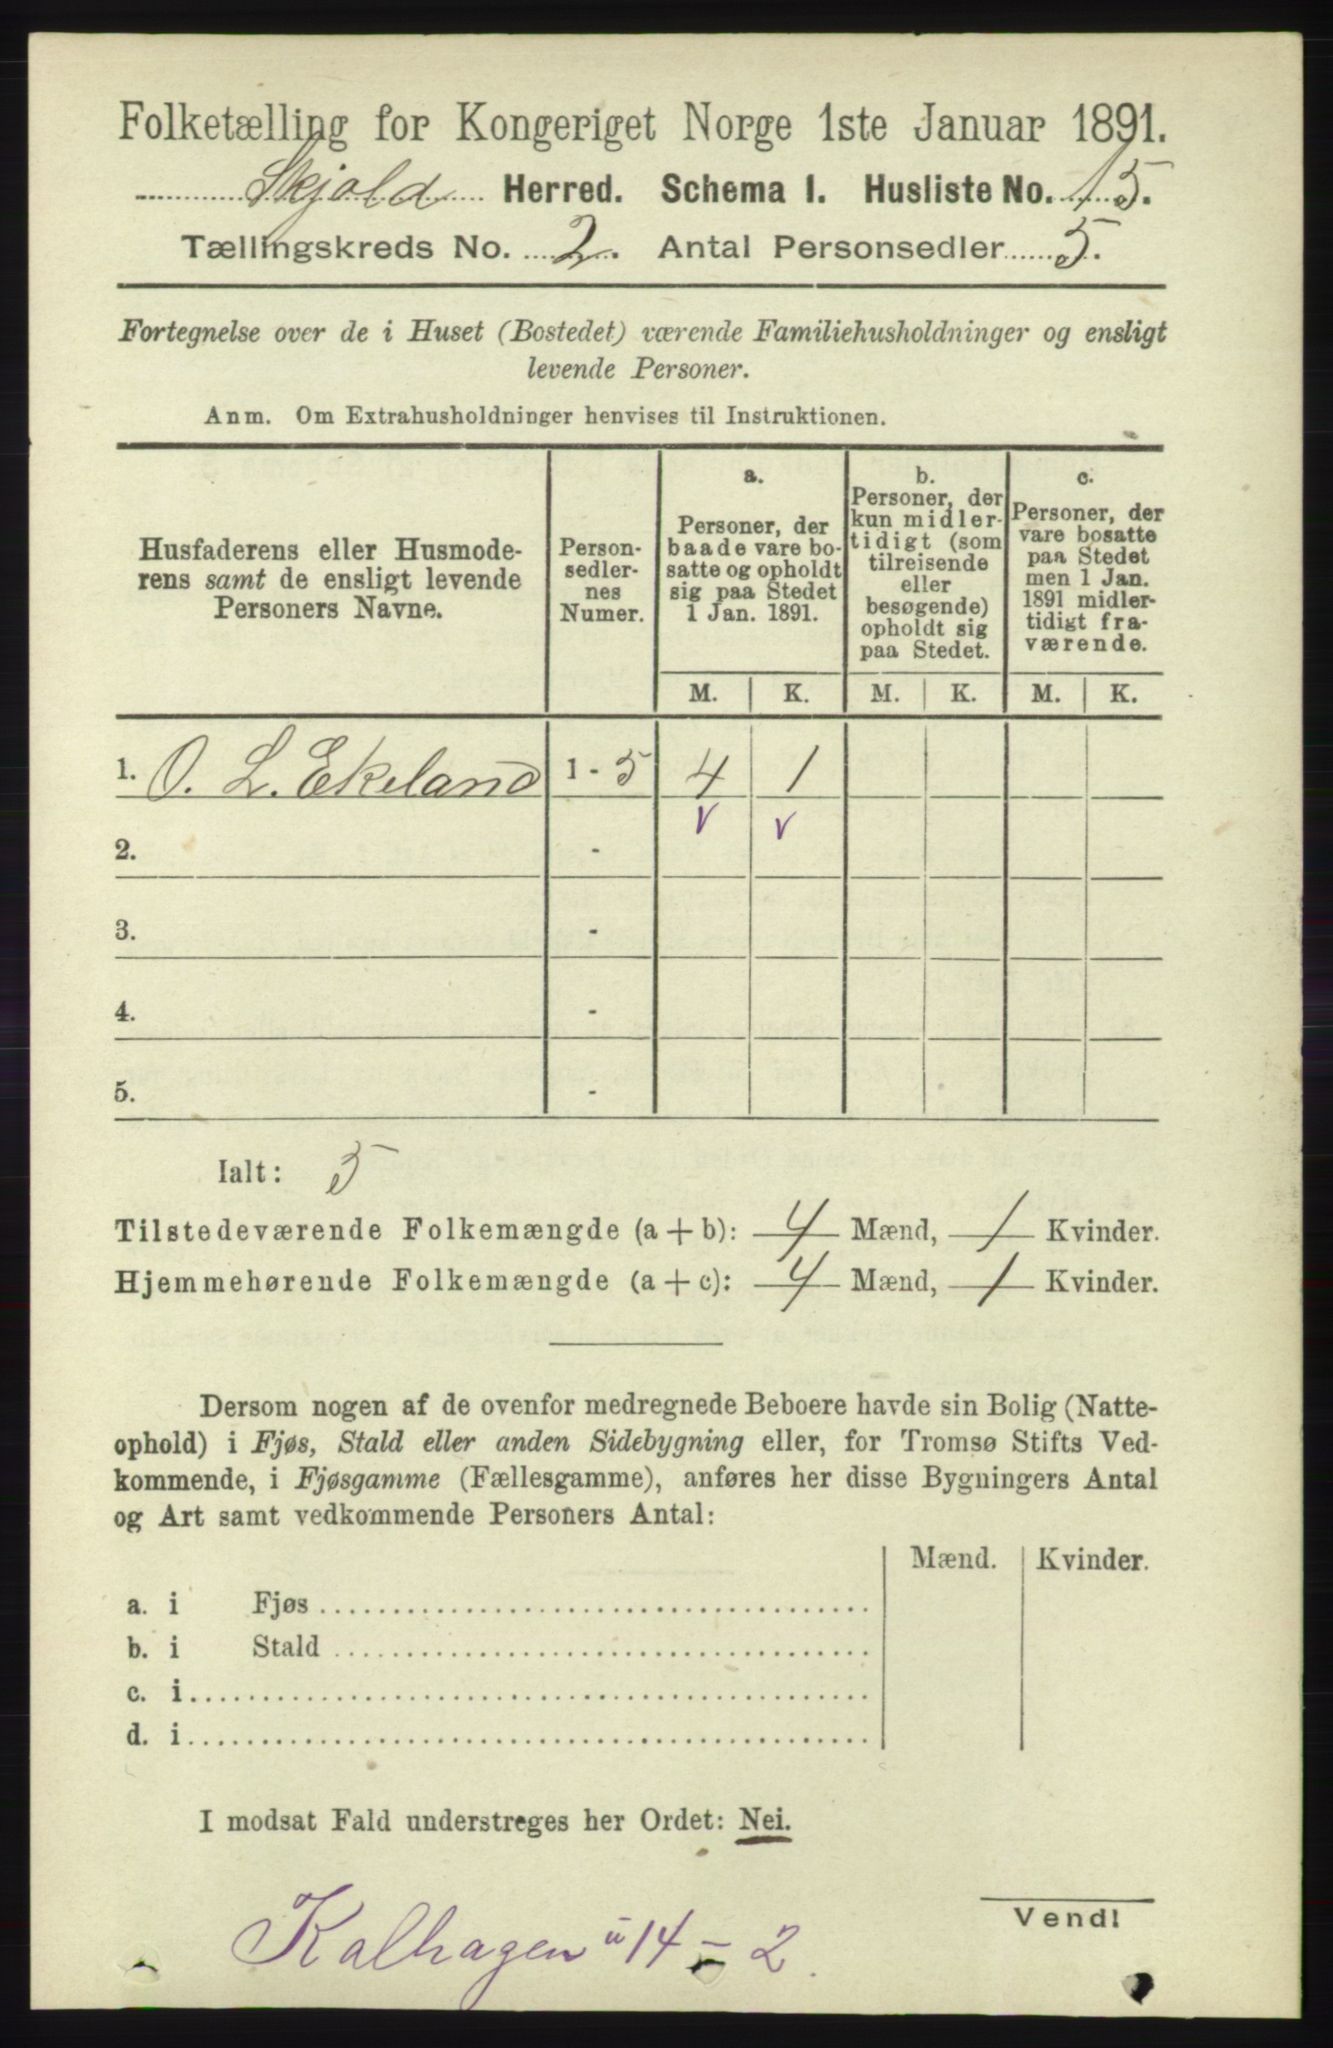 Folketælling for Kongeriget Norge 1ste Januar 1891.
Skjold Herred. Schema I. Husliste No. 15.
Tællingskreds No. 2. Antal Personsedler 5.
Fortegnelse over de i Huset (Bostedet) værende Familiehusholdninger og ensligt
levende Personer.
Anm. Om Extrahusholdninger henvises til Instruktionen.
Husfaderens eller Husmode-
rens samt de ensligt levende
Personers Navne.
Person-
sedler-
nes
Numer.
a.
Personer, der
baade vare bo-
satte og opholdt
sig paa Stedet
1 Jan. 1891.
b.
Personer, der
kun midler-
tidigt (som
tilreisende
eller
besøgende)
opholdt sig
paa Stedet.
c.
Personer, der
vare bosatte
paa Stedet
men 1 Jan.
1891 midler-
tidigt fra-
værende.
M. K. M. K. M. K.
1. O. L. Ekeland 1 - 5 4 1
v v
2. -
3. -
4. -
5. -
Ialt: 5
Tilstedeværende Folkemængde (a + b): 4 Mænd, 1 Kvinder.
Hjemmehørende Folkemængde (a + c): 4 Mænd, 1 Kvinder.
Dersom nogen af de ovenfor medregnede Beboere havde sin Bolig (Natte-
ophold) i Fjøs, Stald eller anden Sidebygning eller, for Tromsø Stifts Ved-
kommende, i Fjøsgamme (Fællesgamme), anføres her disse Bygningers Antal
og Art samt vedkommende Personers Antal:
Mænd. Kvinder.
a. i Fjøs
b. i Stald
c. i
d. i
I modsat Fald understreges her Ordet: Nei.
Vend!
Kalhagen u 14 - 2.